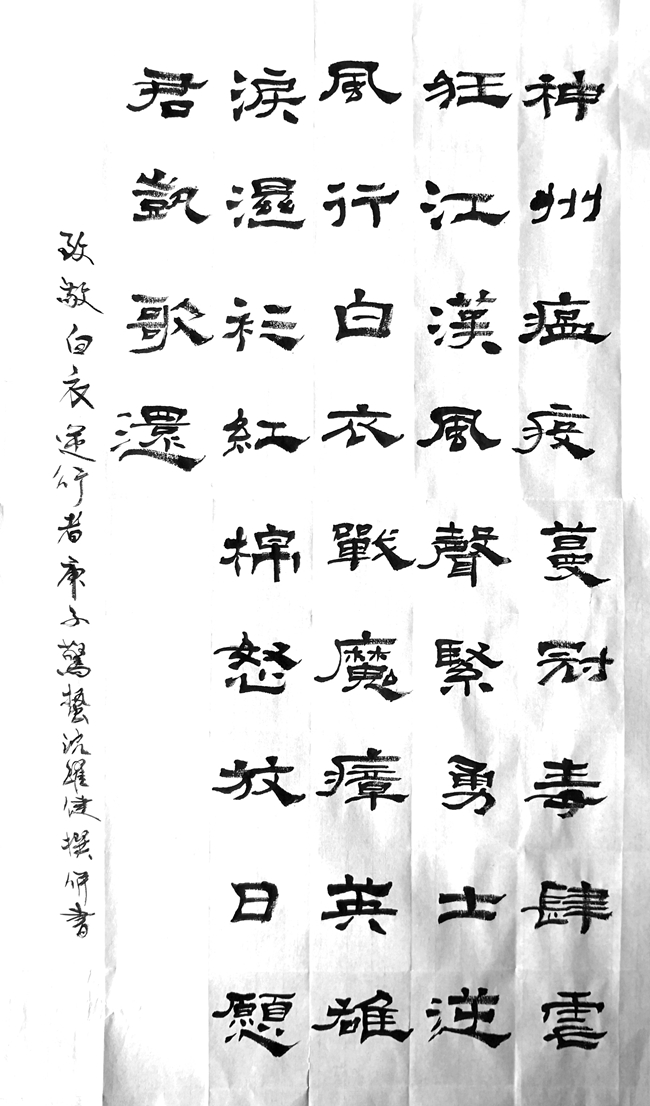 神州瘟疫蔓冠毒肆虐
狂江漢風聲緊勇士逆
風行白衣戰魔瘴英雄
淚濕衫紅棉怒放日願
君凱歌還
致敬白衣逆行者庚子驚蟄沈躍健撰併書